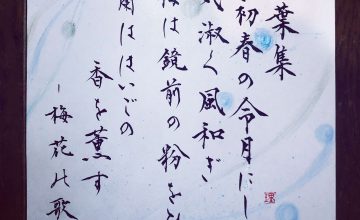 葉集
初春の令月にし
気淑く風和ぎ
は鏡前の粉を
蘭ははいごの
香を薫す
-梅花の歌